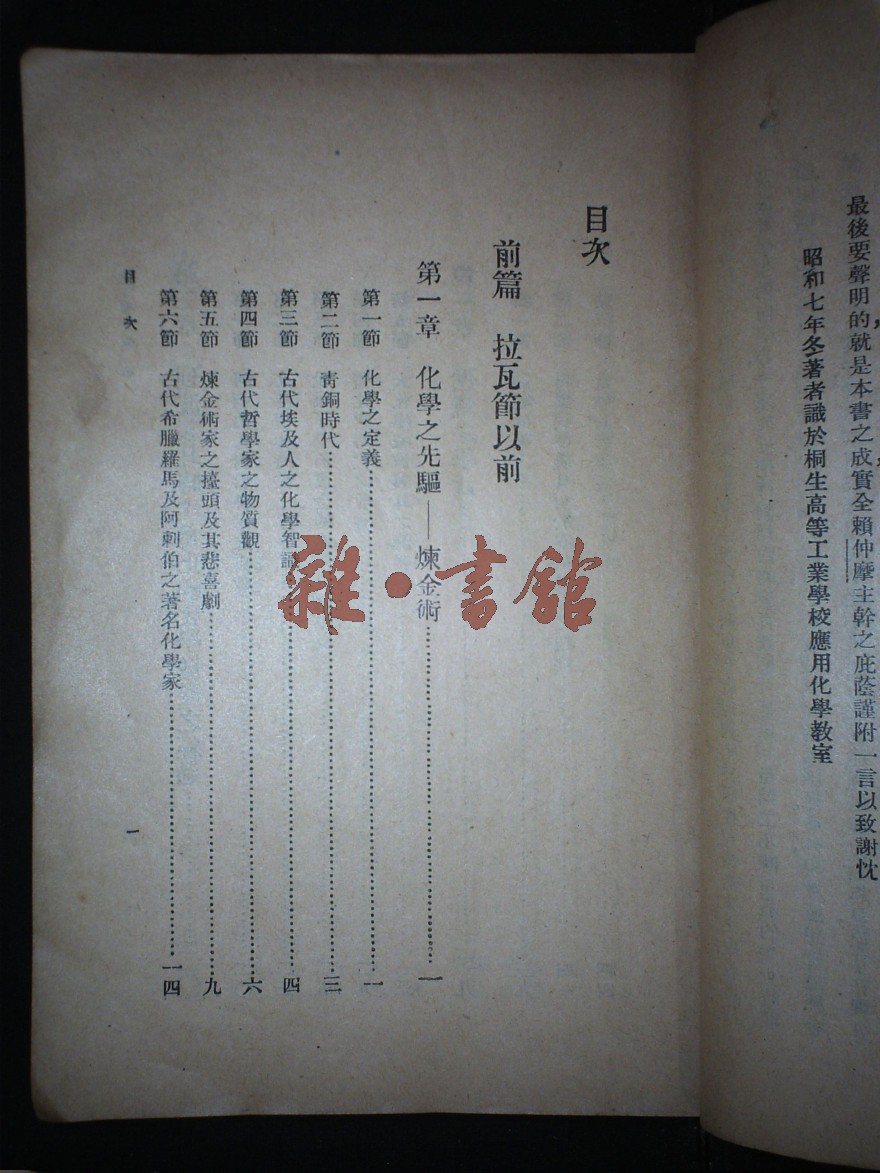 最後要聲明的就是本書之成實全賴仲摩主幹之庇蔭謹附一言以致謝忱
昭和七年冬著者識於桐生高等工業學校應用化學教室
目次
前篇 拉瓦節以前
第一章 化學之先驅——煉金術…………一
第一節 化學之定義…………一
第二節 青銅時代…………三
第三節 古代埃及人之化學智識…………四
第四節 古代哲學家之物質觀…………六
第五節 煉金術家之擡頭及其悲喜劇…………九
第六節 古代希臘羅馬及阿剌伯之著名化學家…………一四
目次
一
雜·書館